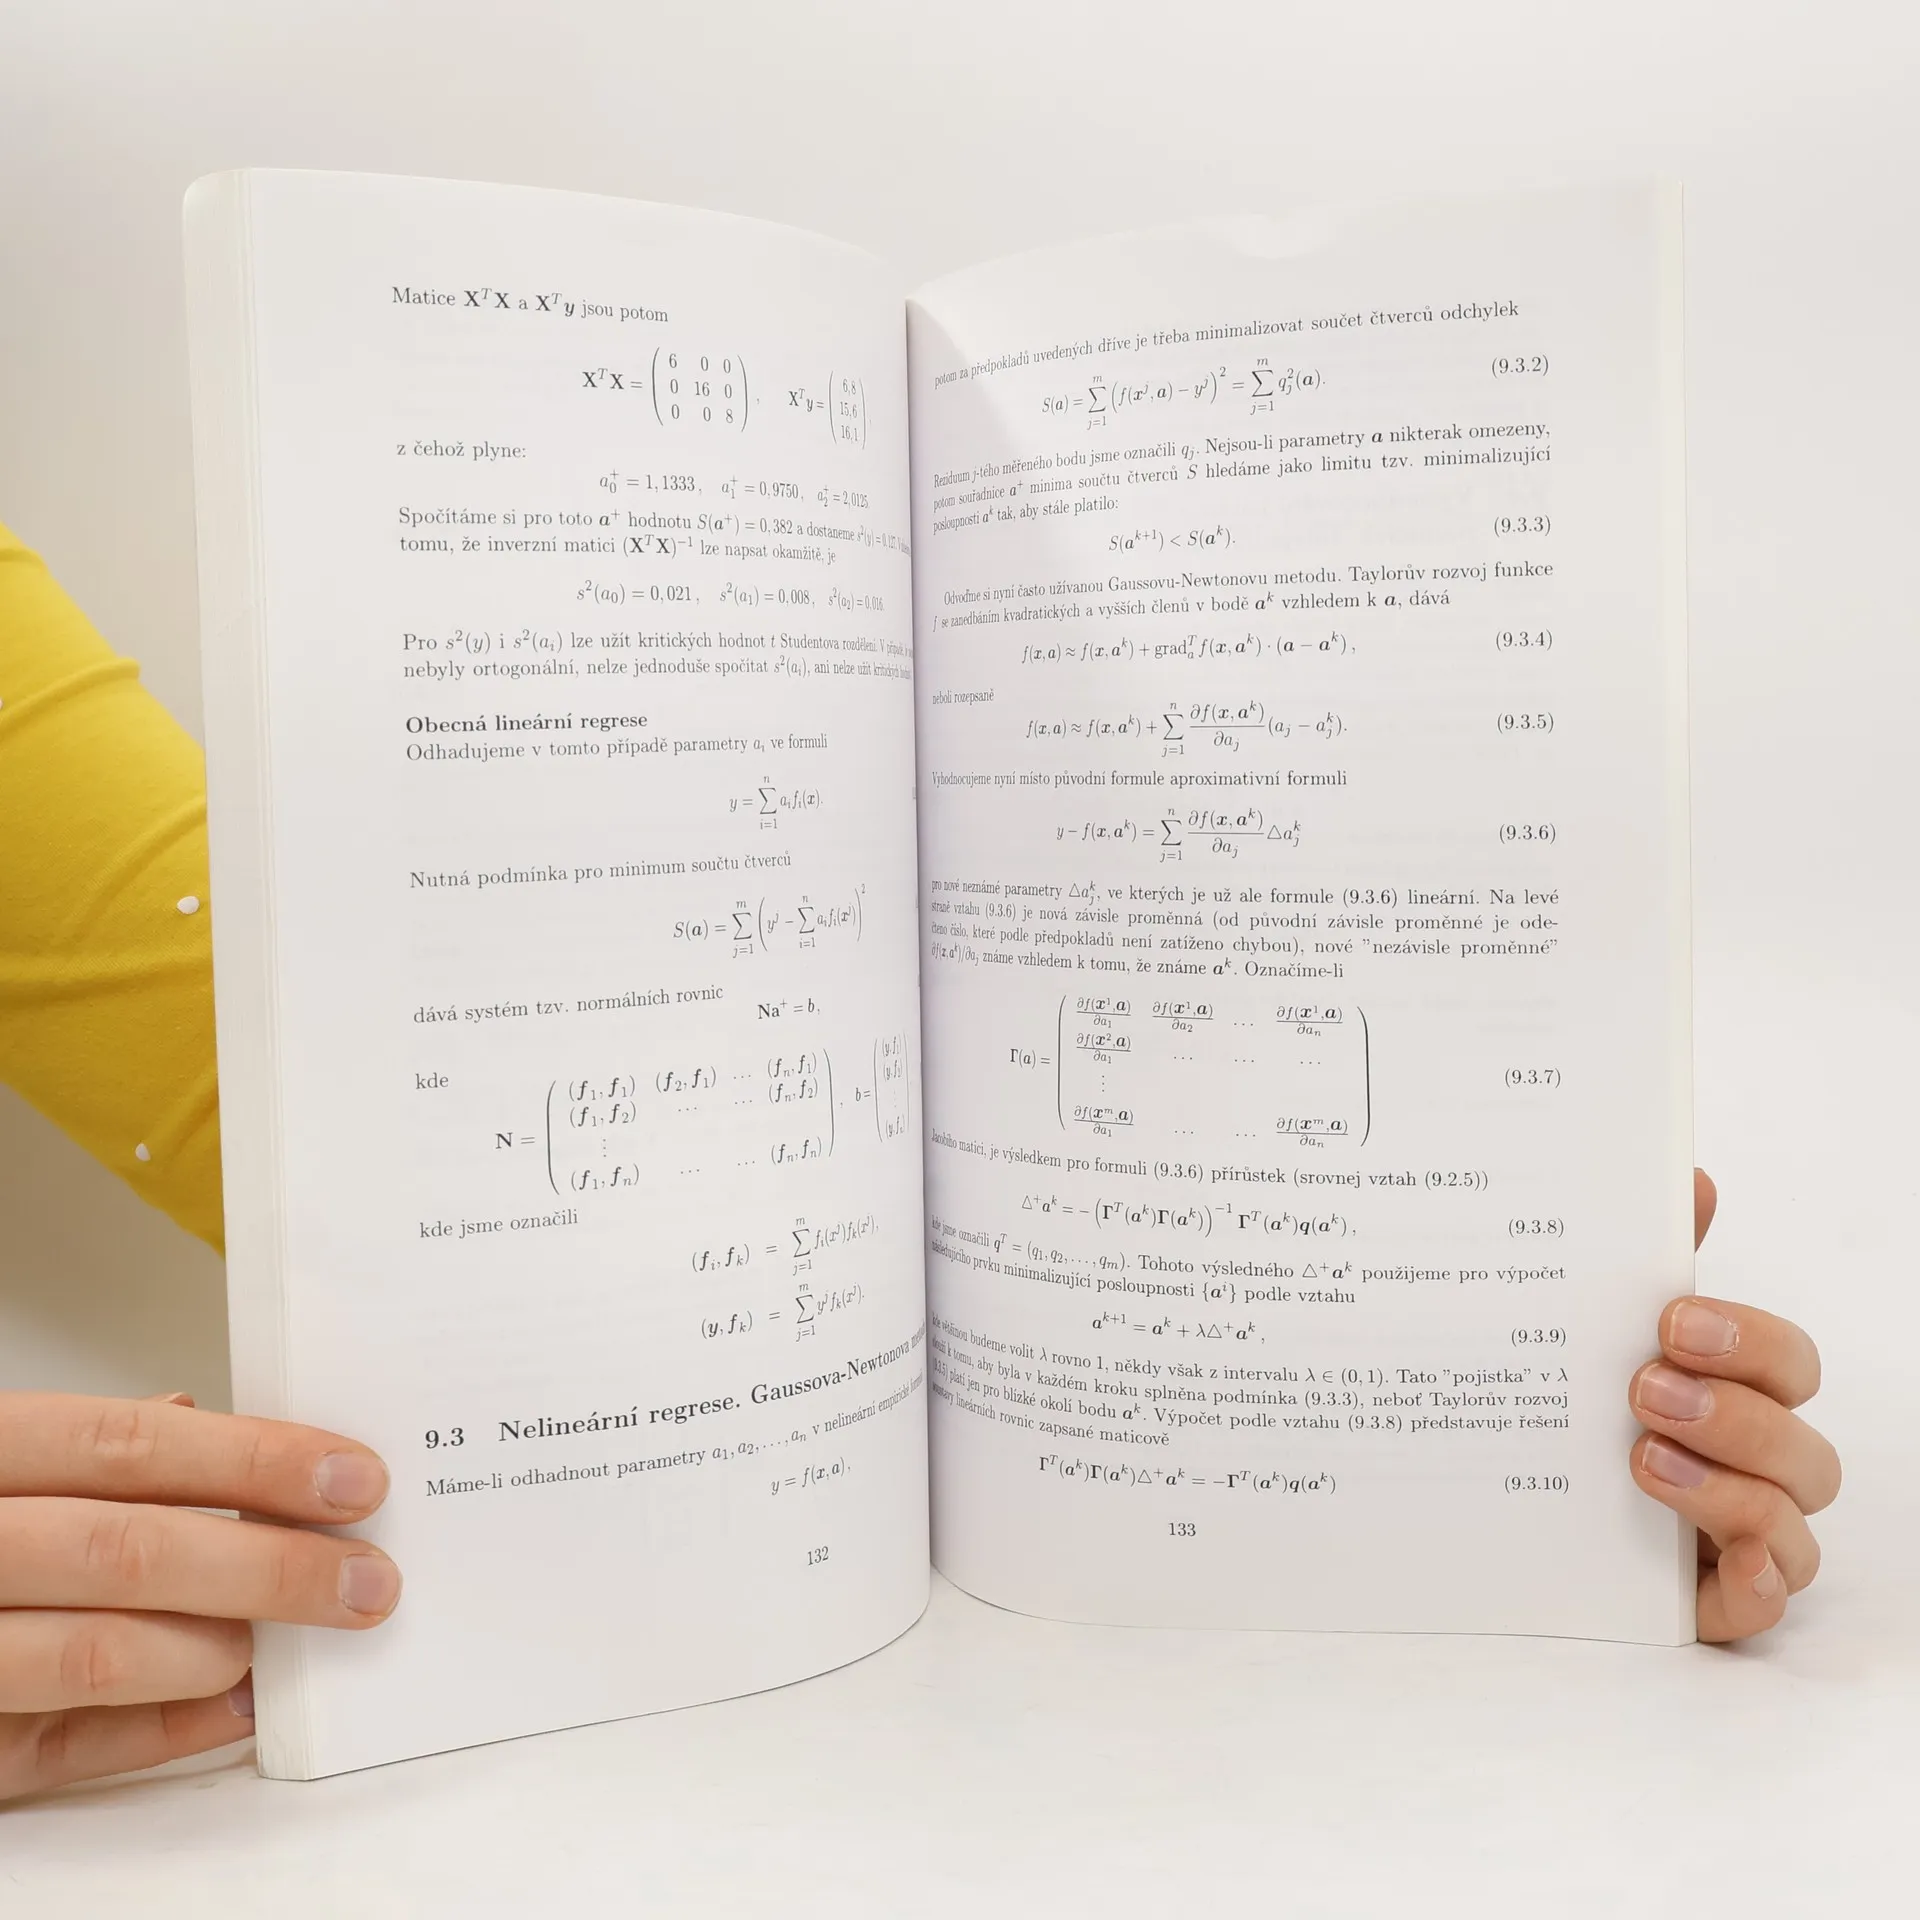 Matice XᵀX a Xᵀy jsou potom
XᵀX = ( 6 0 0 ; 0 16 0 ; 0 0 8 ) , Xᵀy = ( 6,8 ; 15,6 ; 16,1 ) .
z čehož plyne:
a₀⁺ = 1,1333 , a₁⁺ = 0,9750, a₂⁺ = 2,0125
Spočítáme si pro toto a⁺ hodnotu S(a⁺) = 0,382 a dostaneme s²(y) = 0,127.
tomu, že inverzní matici (XᵀX)⁻¹ lze napsat okamžitě, je
s²(a₀) = 0,021 , s²(a₁) = 0,008, s²(a₂) = 0,016.
Pro s²(y) i s²(aᵢ) lze užít kritických hodnot t Studentova rozdělení. V případě,
nebyly ortogonální, nelze jednoduše spočítat s²(aᵢ), ani nelze užít kritických
Obecná lineární regrese
Odhadujeme v tomto případě parametry aᵢ ve formuli
y = ∑ᵢ₌₁ⁿ aᵢfᵢ(x).
Nutná podmínka pro minimum součtu čtverců
S(a) = ∑ⱼ₌₁ᵐ ( yʲ − ∑ᵢ₌₁ⁿ aᵢfᵢ(xʲ) )²
dává systém tzv. normálních rovnic
Na⁺ = b,
kde
N = ( (f₁,f₁) (f₂,f₁) … (fₙ,f₁) ; (f₁,f₂) … … (fₙ,f₂) ; ⋮ ; (f₁,fₙ) … … (fₙ,fₙ) ) , b = ( (y,f₁) ; (y,f₂) ; ⋮ ; (y,fₙ) )
kde jsme označili
(fᵢ,fₖ) = ∑ⱼ₌₁ᵐ fᵢ(xʲ)fₖ(xʲ),
(y,fₖ) = ∑ⱼ₌₁ᵐ yʲfₖ(xʲ).
9.3 Nelineární regrese. Gaussova-Newtonova
Máme-li odhadnout parametry a₁, a₂, …, aₙ v nelineární empirické formuli
y = f(x,a),
132
potom za předpokladů uvedených dříve je třeba minimalizovat součet čtverců odchylek
S(a) = ∑ⱼ₌₁ᵐ (f(xʲ,a) − yʲ)² = ∑ⱼ₌₁ᵐ qⱼ²(a). (9.3.2)
Reziduum j-tého měřeného bodu jsme označili qⱼ. Nejsou-li parametry a nikterak omezeny,
potom souřadnice a⁺ minima součtu čtverců S hledáme jako limitu tzv. minimalizující
posloupnosti aᵏ tak, aby stále platilo:
S(aᵏ⁺¹) < S(aᵏ). (9.3.3)
Odvoďme si nyní často užívanou Gaussovu-Newtonovu metodu. Taylorův rozvoj funkce
f se zanedbáním kvadratických a vyšších členů v bodě aᵏ vzhledem k a, dává
f(x,a) ≈ f(x,aᵏ) + gradₐᵀ f(x,aᵏ) · (a − aᵏ) , (9.3.4)
neboli rozepsaně
f(x,a) ≈ f(x,aᵏ) + ∑ⱼ₌₁ⁿ ∂f(x,aᵏ)/∂aⱼ (aⱼ − aⱼᵏ). (9.3.5)
Vyhodnocujeme nyní místo původní formule aproximativní formuli
y − f(x,aᵏ) = ∑ⱼ₌₁ⁿ ∂f(x,aᵏ)/∂aⱼ △aⱼᵏ (9.3.6)
pro nové neznámé parametry △aⱼᵏ, ve kterých je už ale formule (9.3.6) lineární. Na levé
straně vztahu (9.3.6) je nová závisle proměnná (od původní závisle proměnné je ode-
čteno číslo, které podle předpokladů není zatíženo chybou), nové ”nezávisle proměnné”
∂f(x,aᵏ)/∂aⱼ známe vzhledem k tomu, že známe aᵏ. Označíme-li
Γ(a) = ( ∂f(x¹,a)/∂a₁ ∂f(x¹,a)/∂a₂ … ∂f(x¹,a)/∂aₙ ; ∂f(x²,a)/∂a₁ … … … ; ⋮ ; ∂f(xᵐ,a)/∂a₁ … … ∂f(xᵐ,a)/∂aₙ ) (9.3.7)
Jacobiho matici, je výsledkem pro formuli (9.3.6) přírůstek (srovnej vztah (9.2.5))
△⁺aᵏ = − (Γᵀ(aᵏ)Γ(aᵏ))⁻¹ Γᵀ(aᵏ)q(aᵏ) , (9.3.8)
kde jsme označili qᵀ = (q₁, q₂, …, qₘ). Tohoto výsledného △⁺aᵏ použijeme pro výpočet
následujícího prvku minimalizující posloupnosti {aⁱ} podle vztahu
aᵏ⁺¹ = aᵏ + λ△⁺aᵏ , (9.3.9)
kde většinou budeme volit λ rovno 1, někdy však z intervalu λ ∈ (0, 1). Tato ”pojistka” v λ
slouží k tomu, aby byla v každém kroku splněna podmínka (9.3.3), neboť Taylorův rozvoj
(9.3.5) platí jen pro blízké okolí bodu aᵏ. Výpočet podle vztahu (9.3.8) představuje řešení
soustavy lineárních rovnic zapsané maticově
Γᵀ(aᵏ)Γ(aᵏ)△⁺aᵏ = −Γᵀ(aᵏ)q(aᵏ) (9.3.10)
133